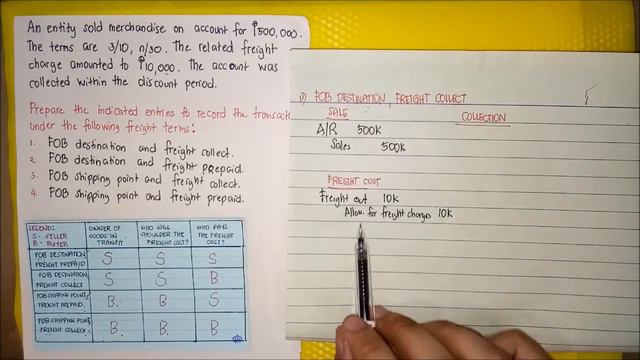 An entity sold merchandise on account for ₱500,000.
The terms are 3/10, n/30. The related freight
charge amounted to ₱10,000. The account was
collected within the discount period.
Prepare the indicated entries to record the transact
under the following freight terms:
1. FOB destination and freight collect.
2. FOB destination and freight prepaid.
3. FOB shipping point and freight collect.
4. FOB shipping point and freight prepaid.
LEGEND: S - SELLER B - BUYER | OWNER OF GOODS IN TRANSIT | WHO WILL SHOULDER THE FREIGHT COST? | WHO PAYS THE FREIGHT COST?
FOB DESTINATION, FREIGHT PREPAID | S | S | S
FOB DESTINATION, FREIGHT COLLECT | S | S | B
FOB SHIPPING POINT, FREIGHT PREPAID | B | B | S
FOB SHIPPING POINT, FREIGHT COLLECT | B | B | B
1) FOB DESTINATION, FREIGHT COLLECT
SALE COLLECTION
A/R 500K
Sales 500K
FREIGHT COST
Freight out 10K
Allow. for freight charges 10K